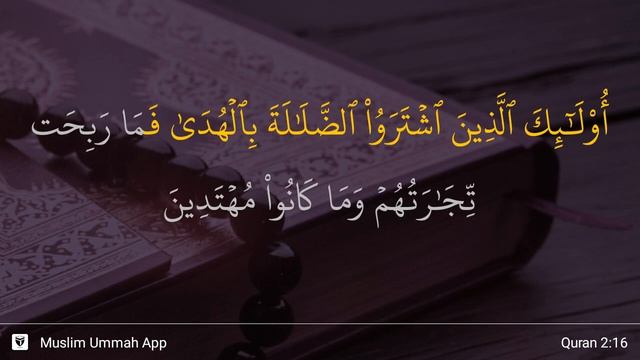 أُوْلَـٰٓئِكَ ٱلَّذِينَ ٱشْتَرَوُاْ ٱلضَّلَـٰلَةَ بِٱلْهُدَىٰ فَمَا رَبِحَت
تِّجَـٰرَتُهُمْ وَمَا كَانُواْ مُهْتَدِينَ
Muslim Ummah App
Quran 2:16